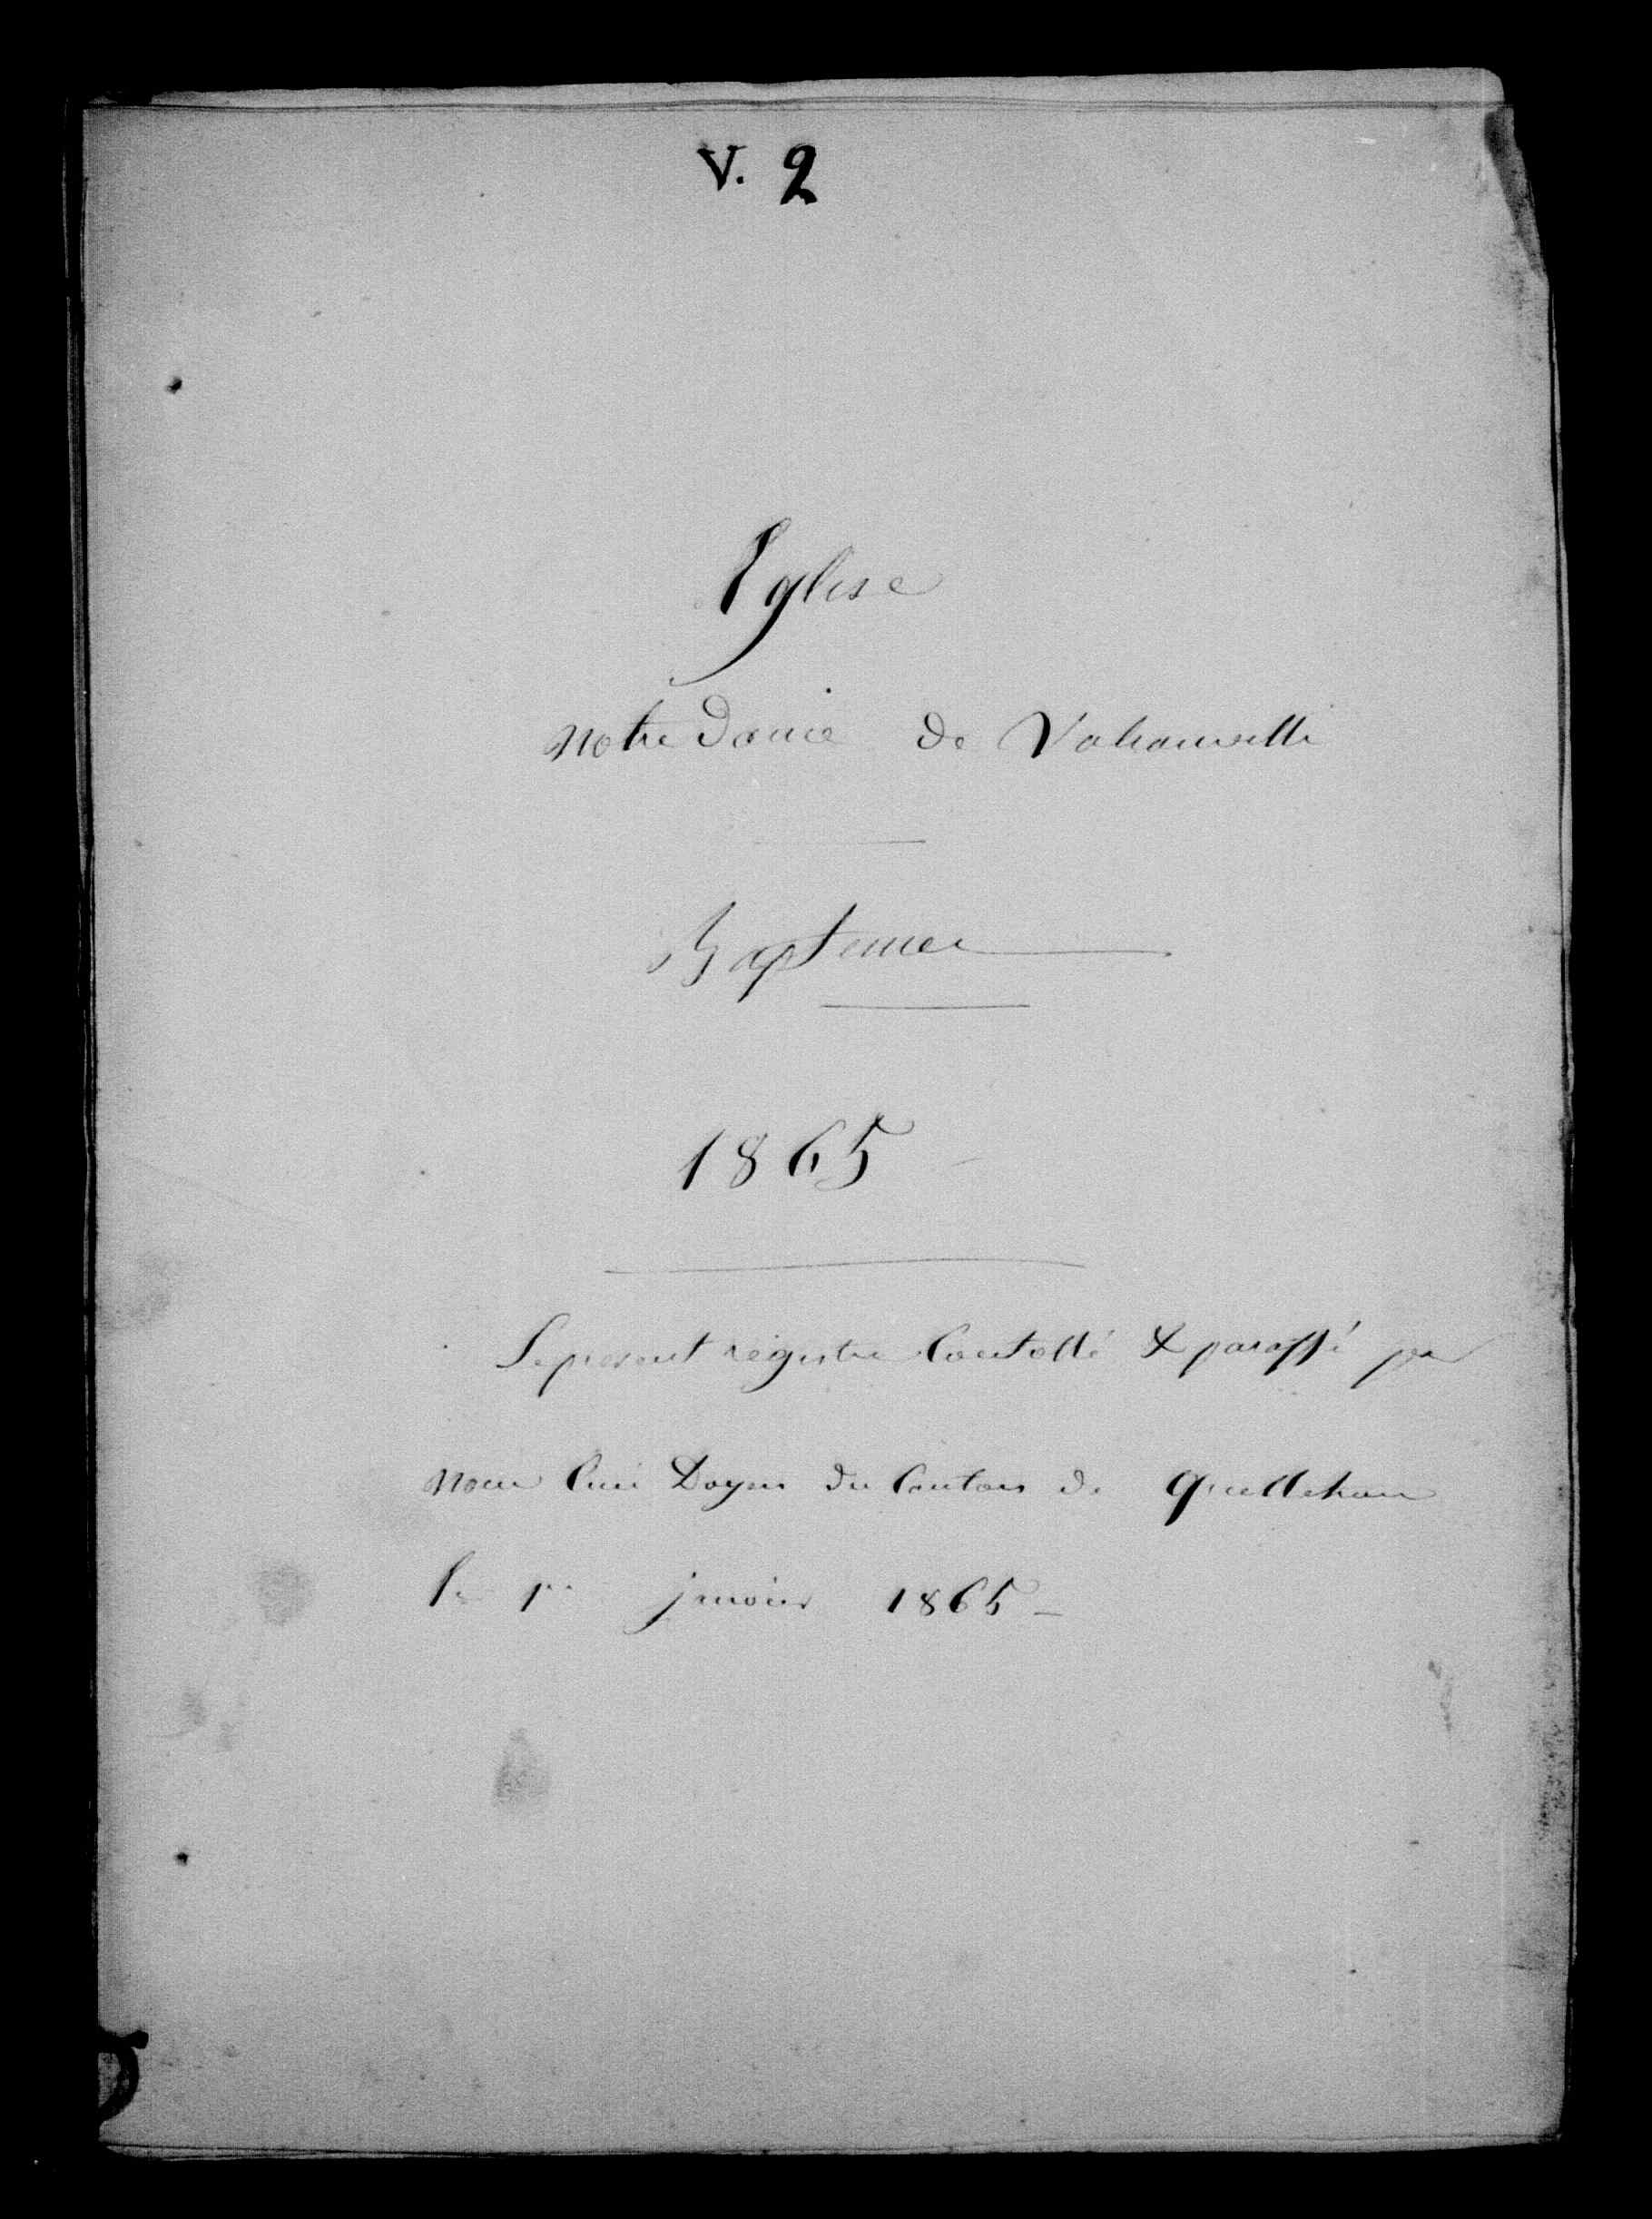 V. 2
Eglise
Notre Dame de Valcanville
Baptemes
1865
Le present registre Contollé & paraffé par
Nous Curé Doyen du Canton de Quettehou
le 1er janvier 1865 –